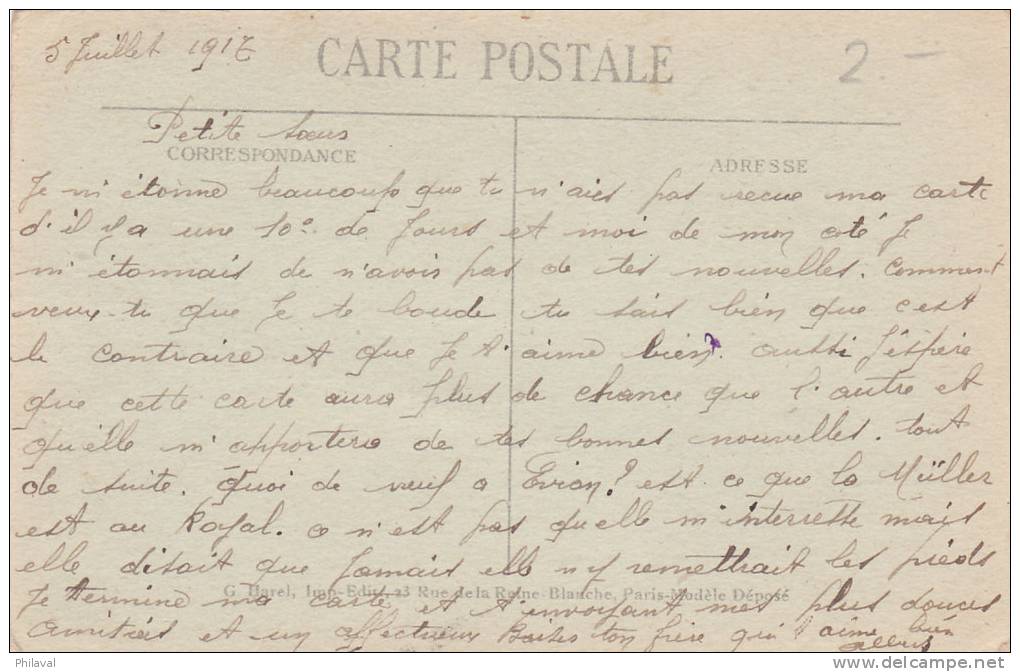 5 Juillet 1917
CARTE POSTALE
2.-
Petite sœur
CORRESPONDANCE
ADRESSE
Je m'étonne beaucoup que tu n'aies pas recue ma carte
d'il y a une 10e de Jours et moi de mon coté Je
m'étonnais de n'avois pas de tes nouvelles. Comment
veux-tu que Je te boude tu sais bien que c'est
le contraire et que Je t'aime bien. aussi J'éspère
que cette carte aura plus de chance que l'autre et
qu'elle m'apportera de tes bonnes nouvelles. tout
de suite. Quoi de neuf a Evian? est ce que la Müller
est au Royal. ce n'est pas qu'elle m'interresse mais
elle disait que Jamais elle n'y remettrait les pieds
G. Harel, Imp-Edit, 23 Rue de la Reine Blanche, Paris-Modèle Déposé
Je termine ma carte et t'envoyant mes plus douces
amitiés et un affectueux Baiser ton frère qui t'aime bien
Philaval
delcampe.net